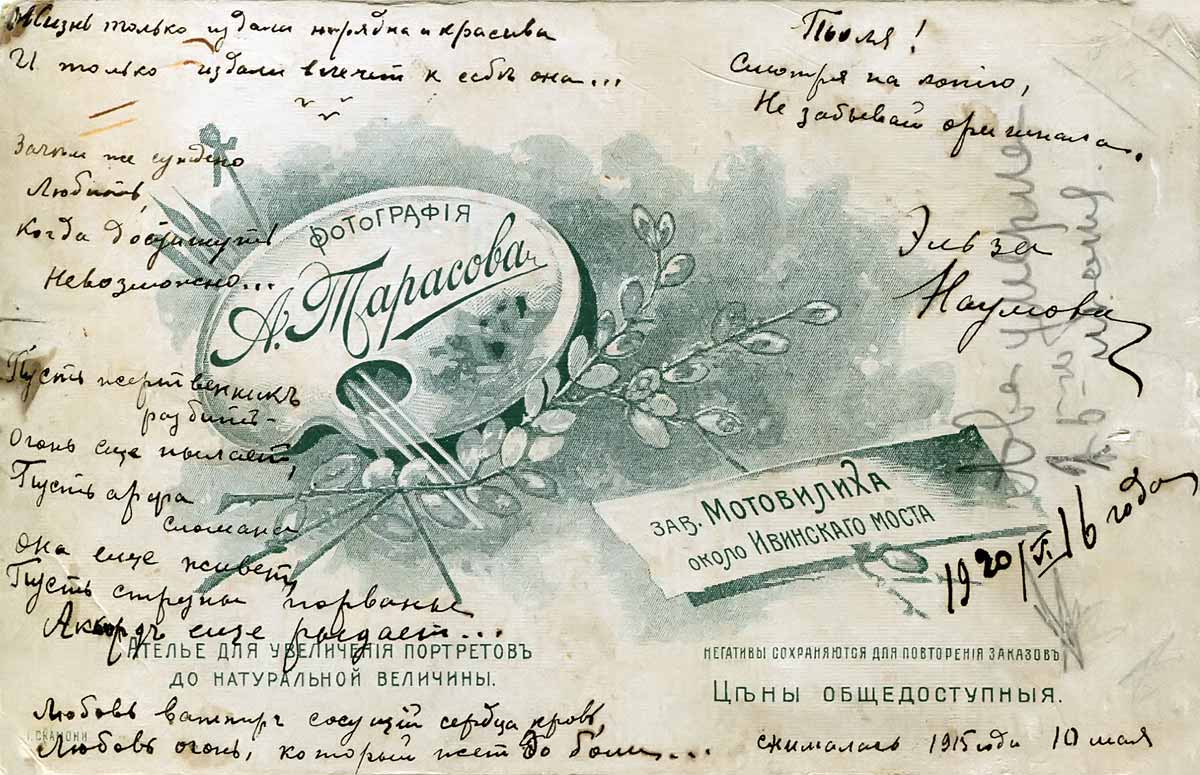 Жизнь только издали нарядна и красива
И только издали влечет к себѣ она...
Зачем же суждено
Любить,
Когда достигнуть
Невозможно...
Пусть жертвенникъ
разбитъ-
Огонь еще пылает,
Пусть арфа
сломана
она еще живетъ,
Пусть струны порваны
Аккордъ еще рыдает...
Любовь вампир сосущій сердца кровь,
Любовь огонь, который жет до боли...
Поля!
Смотря на копію,
Не забывай оригинала.
Эльза
Наумова
1920/VI 16 года
снималась 1915 года 10 мая
ФОТОГРАФІЯ
А. Тарасова
ЗАВ. МОТОВИЛИХА
ОКОЛО ИВИНСКАГО МОСТА
АТЕЛЬЕ ДЛЯ УВЕЛИЧЕНІЯ ПОРТРЕТОВЪ
ДО НАТУРАЛЬНОЙ ВЕЛИЧИНЫ.
НЕГАТИВЫ СОХРАНЯЮТСЯ ДЛЯ ПОВТОРЕНІЯ ЗАКАЗОВЪ
ЦѢНЫ ОБЩЕДОСТУПНЫЯ.
І. СКАМОНИ